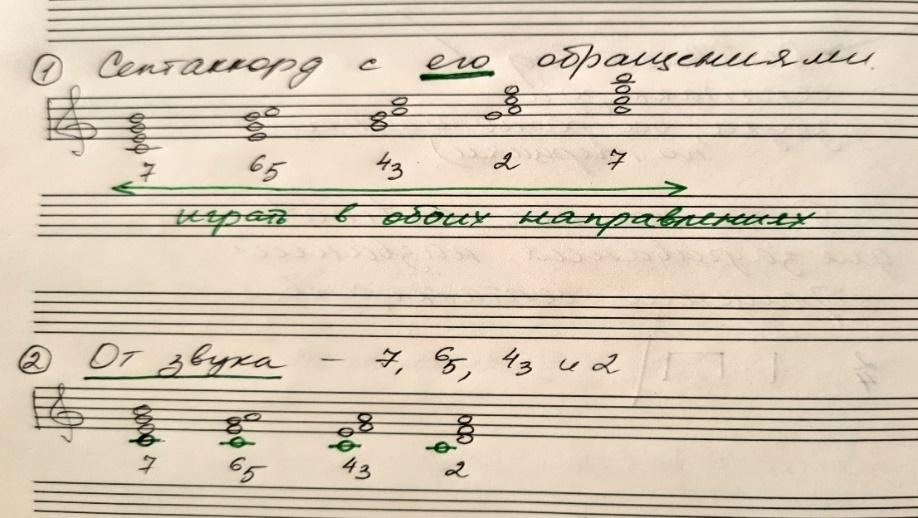 ① Септаккорд с его обращениями.
7 6 5 4 3 2 7
играть в обоих направлениях
② От звука – 7, 6 5, 4 3 и 2
7 6 5 4 3 2